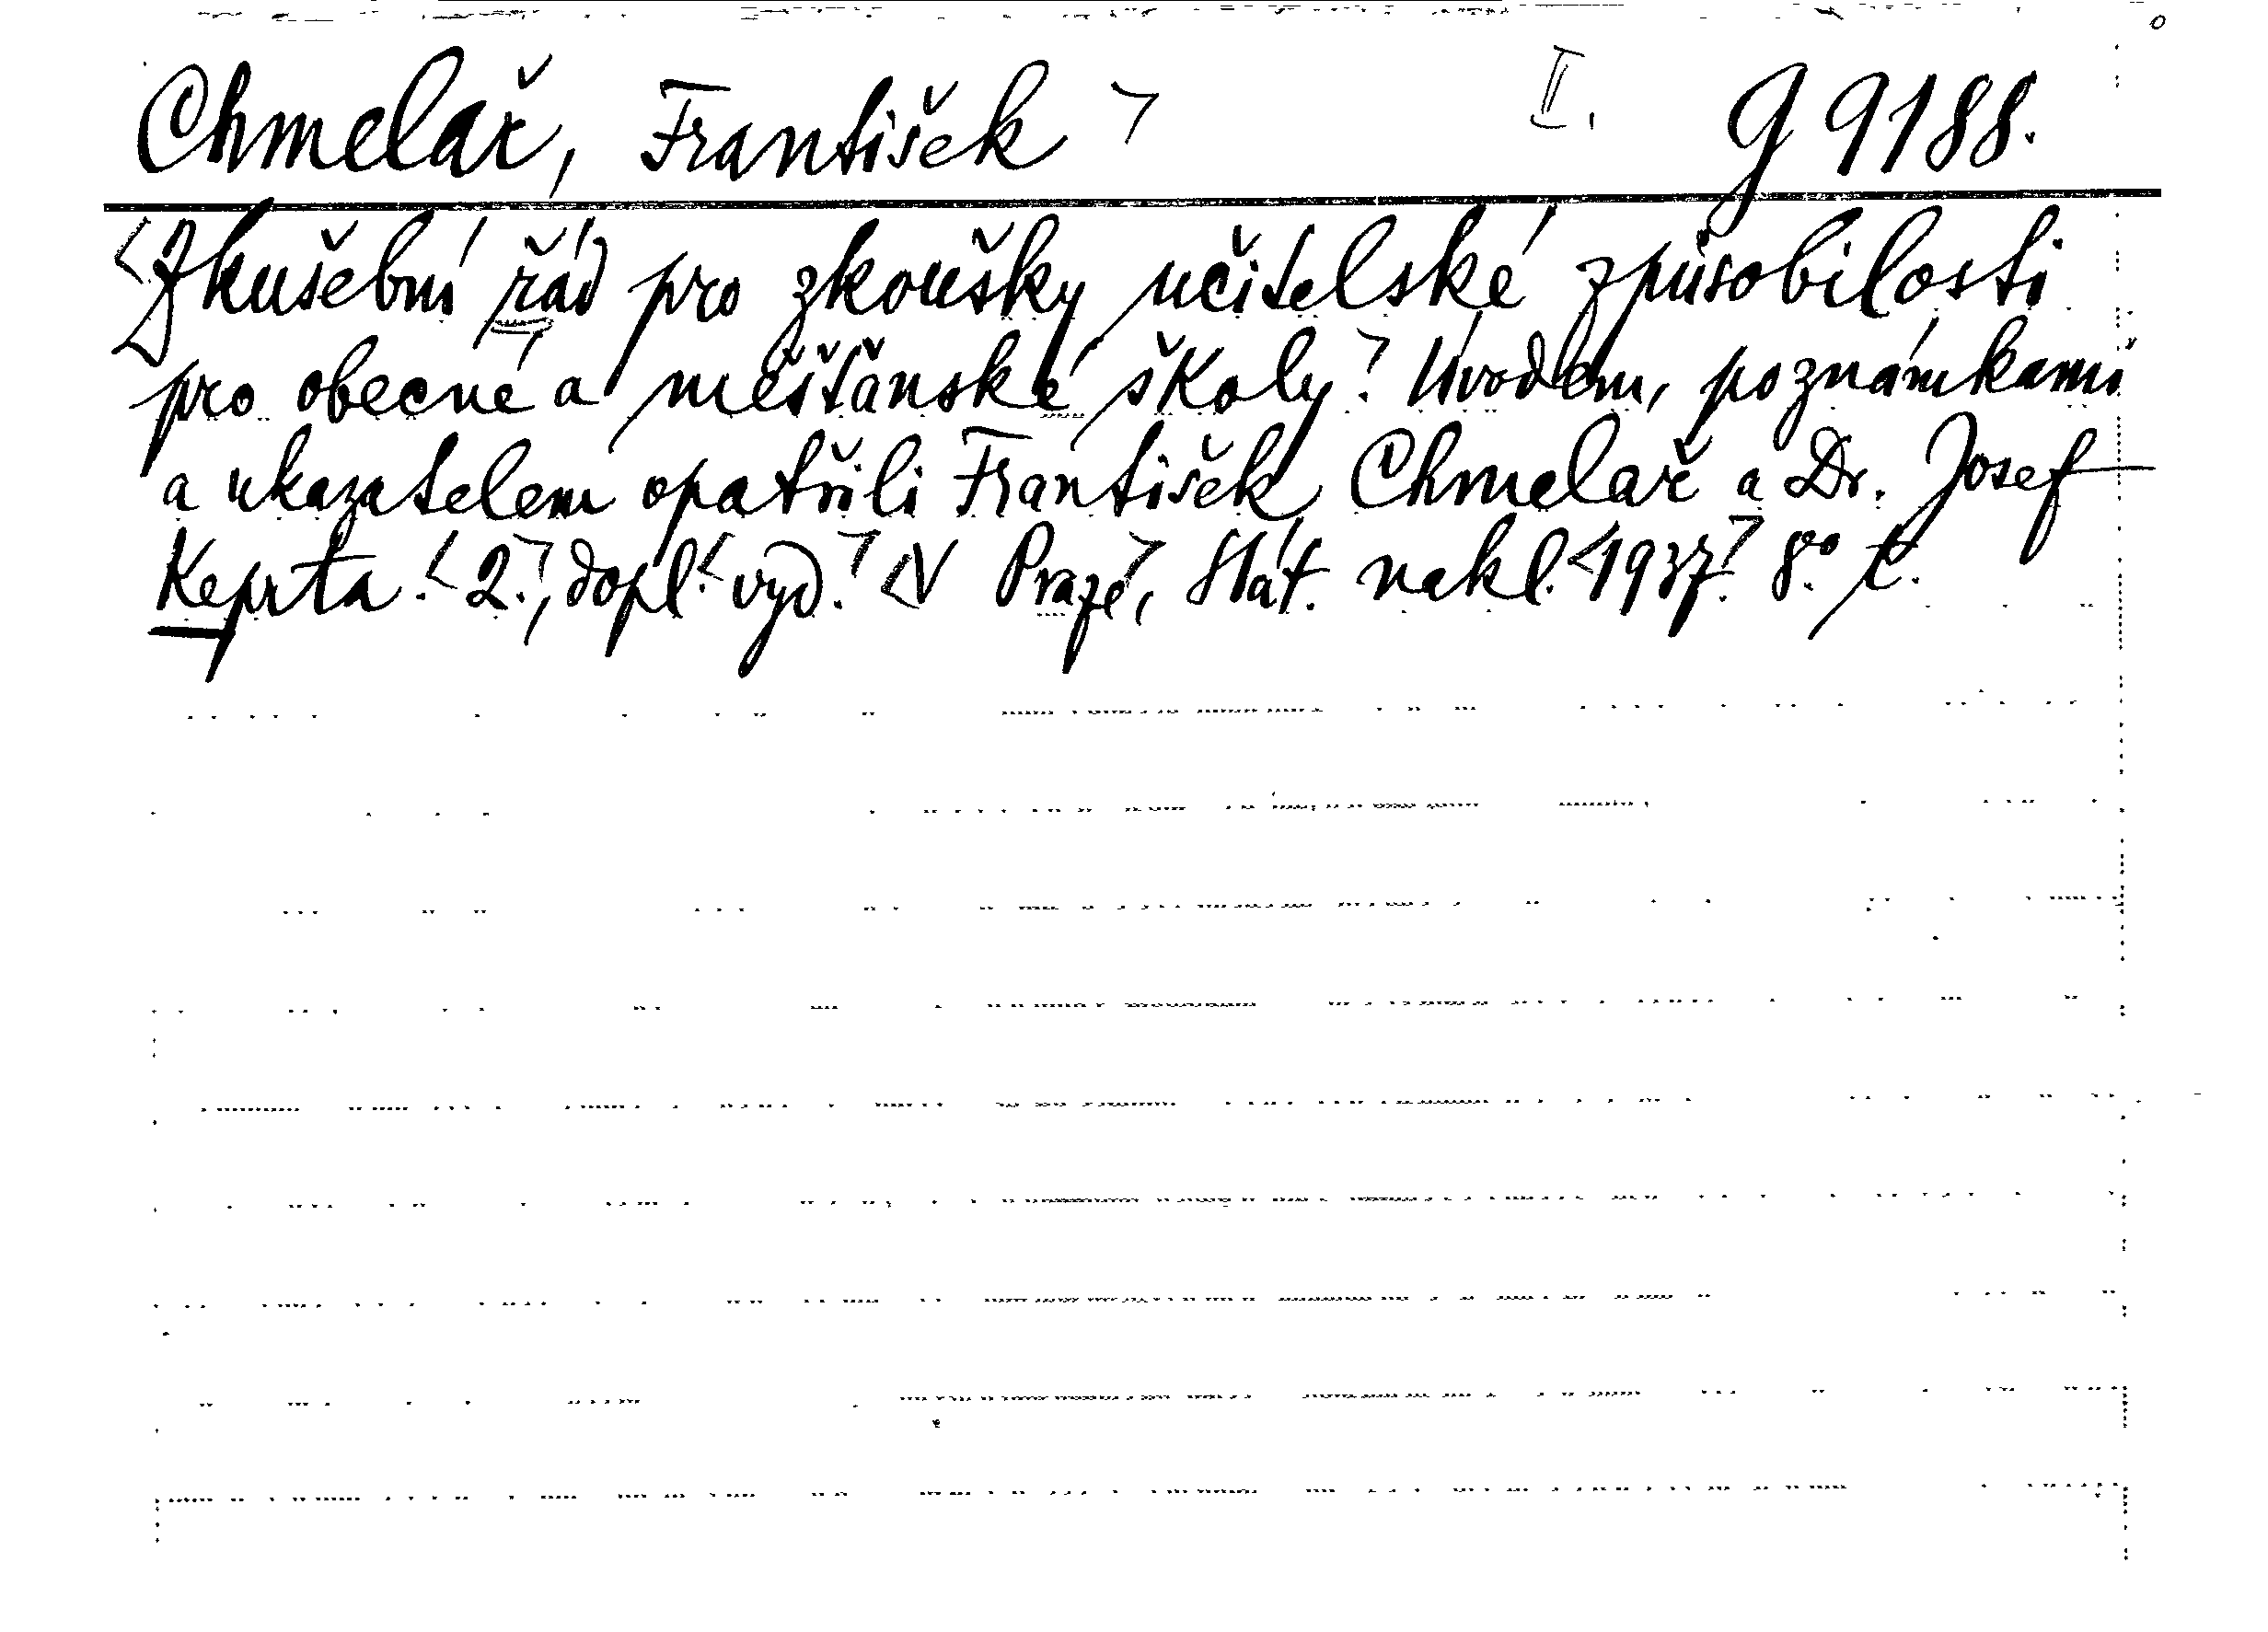 Chmelař, František II. G 9188.
Zkušební řád pro zkoušky učitelské způsobilosti
pro obecné a měšťanské školy. Úvodem, poznámkami
a ukazatelem opatřili František Chmelař a Dr. Josef
Keprta. 2., dopl. vyd. V Praze, Stát. nakl. 1937. 8° t.